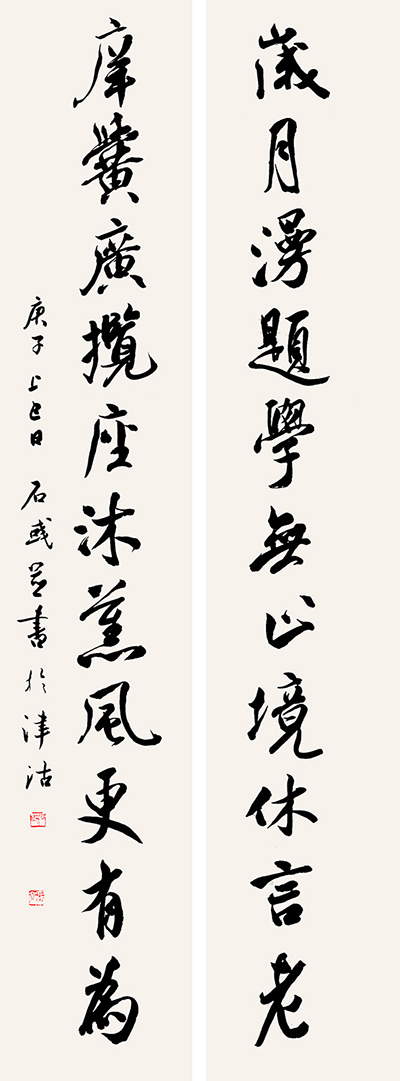 歲月漫題學無止境休言老
庠黌廣攬座沐薰風更有為
庚子上巳日石彧並書於津沽